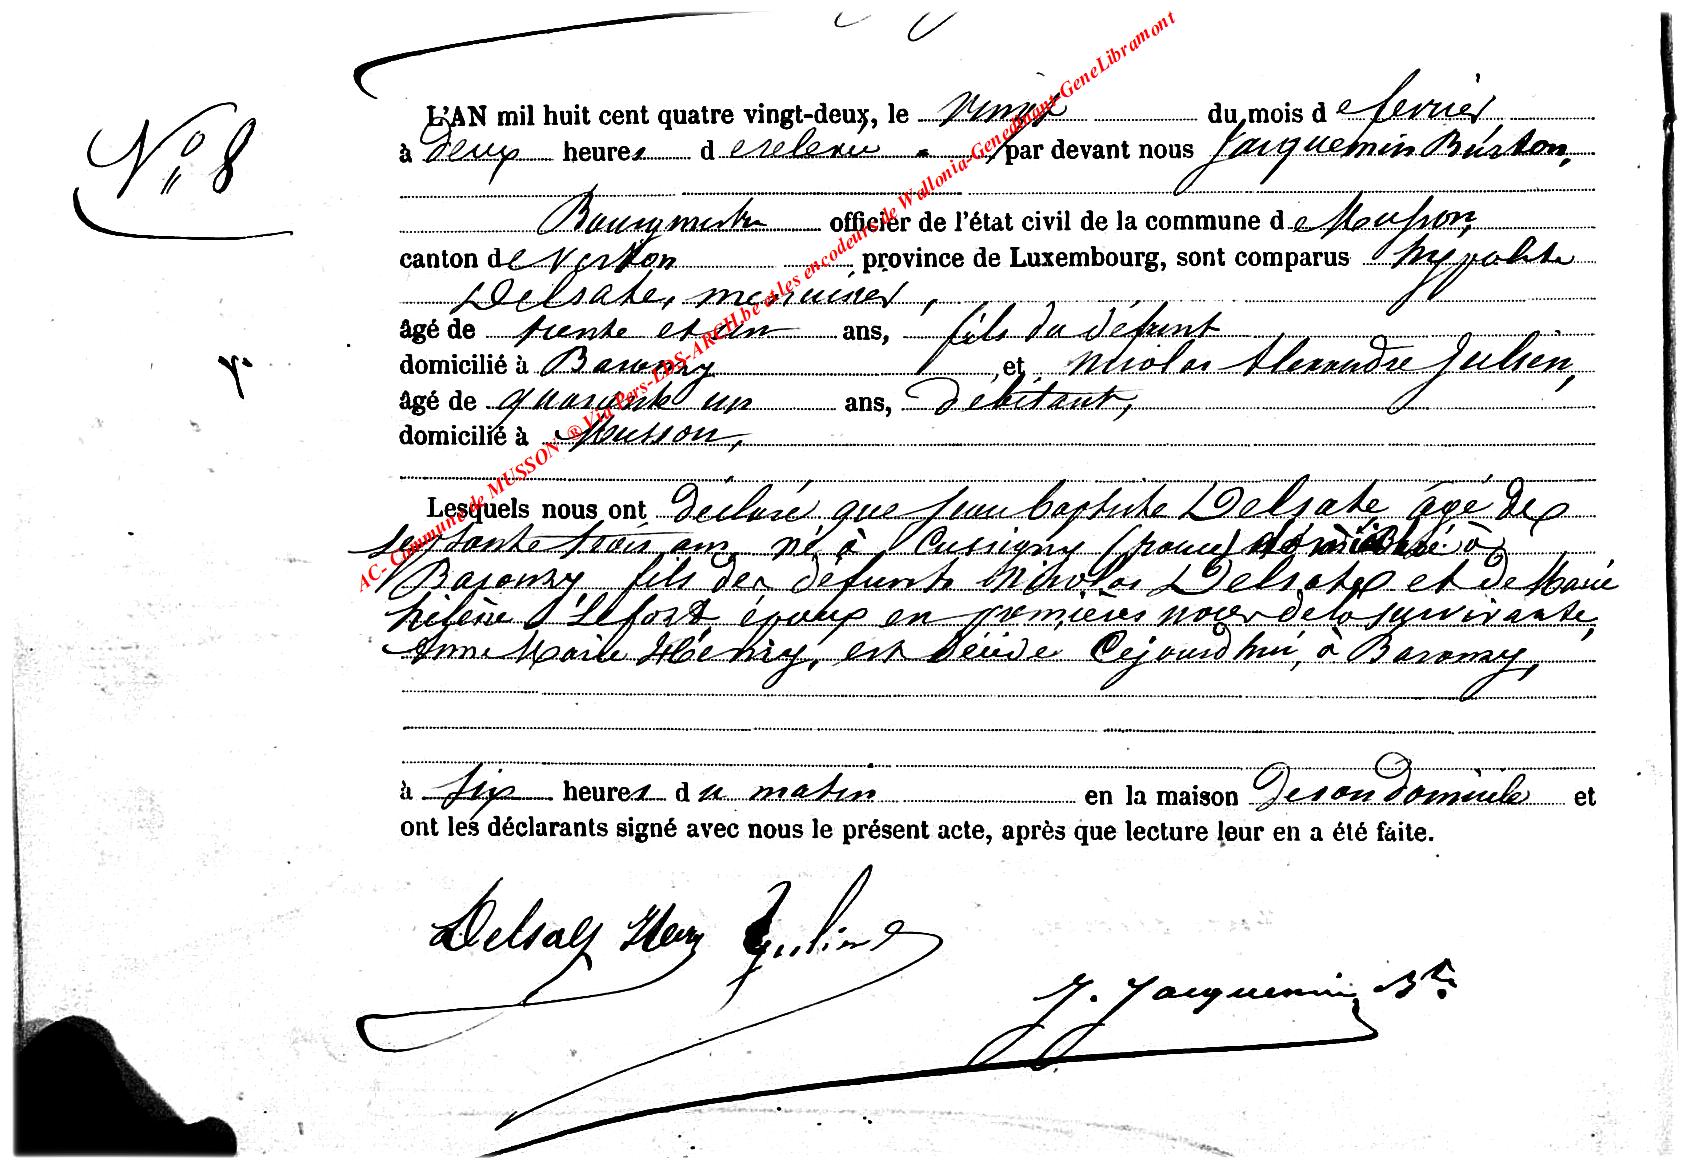 N° 8
L'AN mil huit cent quatre vingt-deux, le vingt du mois de fevrier
à deux heures de relevée par devant nous Jacquemin Burton,
Bourgmestre officier de l'état civil de la commune de Musson,
canton de Virton province de Luxembourg, sont comparus hypolite
Delsate, menuisier,
âgé de trente et un ans, fils du défunt
domicilié à Baranzy et Nicolas Alexandre Julien,
âgé de quarante un ans, débitant,
domicilié à Musson,
Lesquels nous ont déclaré que Jean baptiste Delsate âgé de
septante trois ans né à Cussigny (france) domicilié à
Baranzy fils des défunts Nicolas Delsate et de Marie
hélène Lefort époux en premières noces de la survivante,
Anne Marie Henry, est décédé Cejourd'hui, à Baranzy,
à six heures du matin en la maison de son domicile et
ont les déclarants signé avec nous le présent acte, après que lecture leur en a été faite.
Delsate Henry Julien
J. Jacquemin Btn
AC- Commune de MUSSON ® Via Pers-LDS-ARCH.be et les encodeurs de Wallonia-Genedinant-GeneLibramont